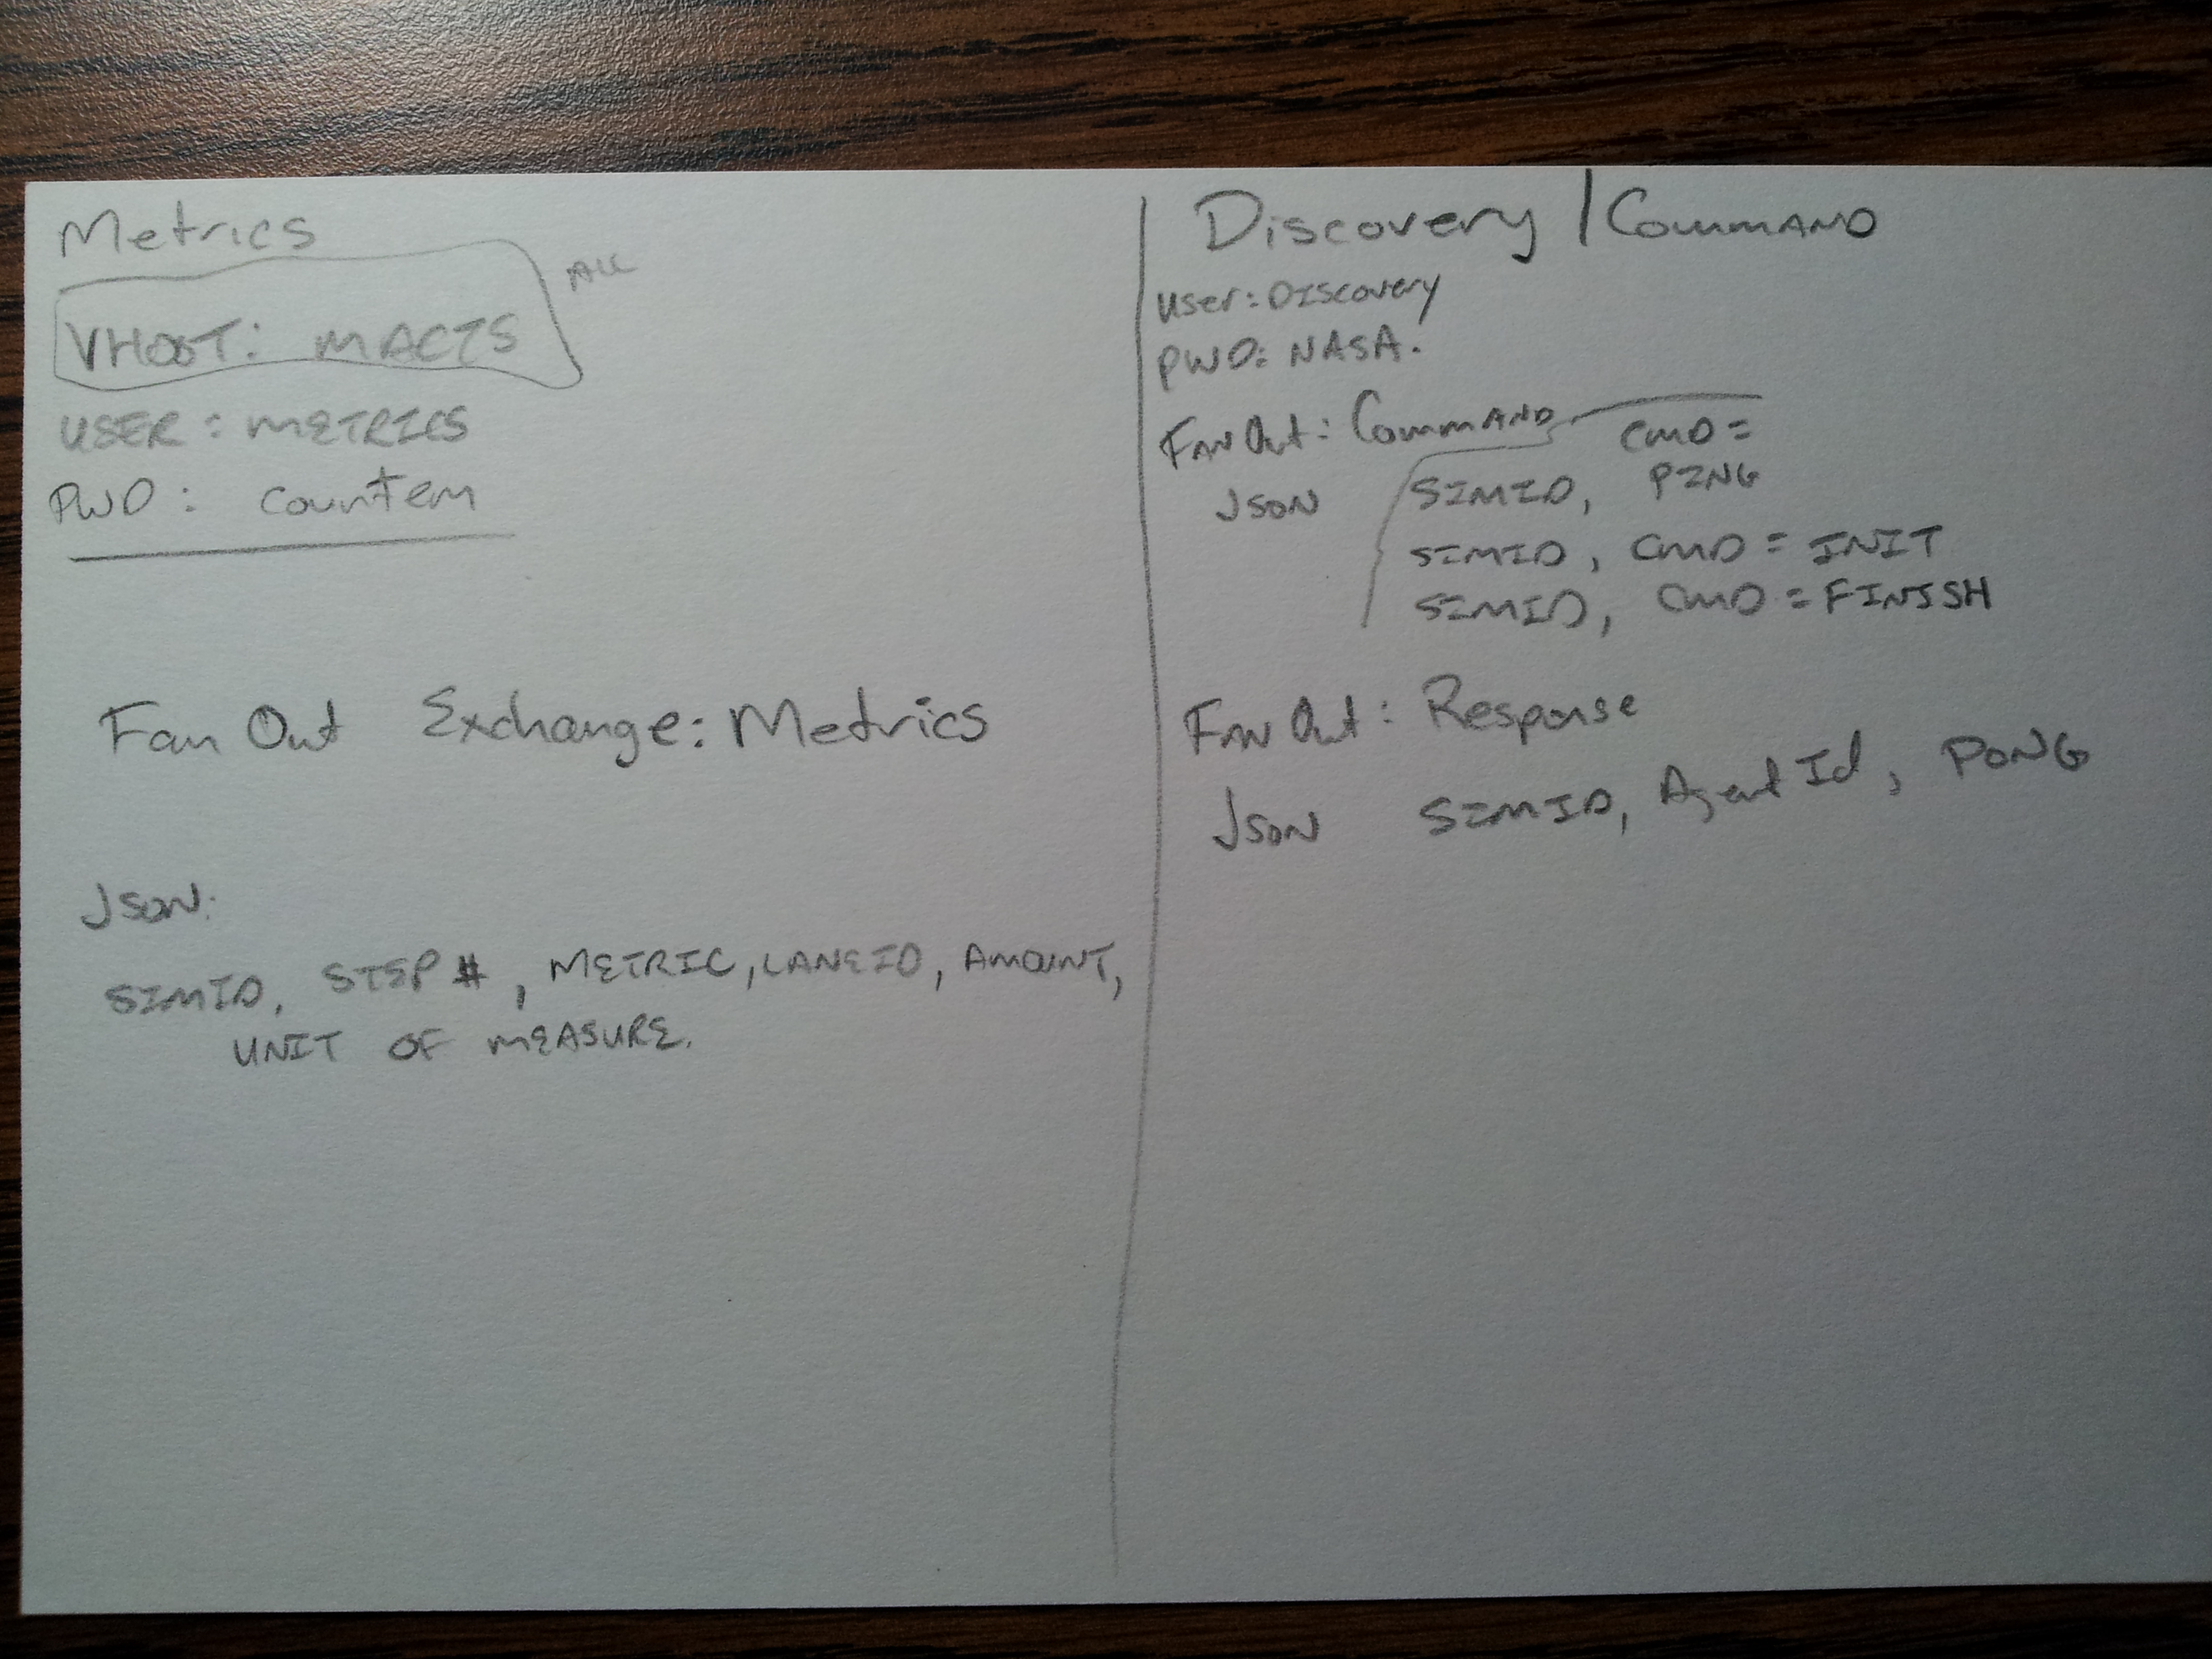 Metrics
ALL
VHOST: MACTS
USER: METRICS
PWD: countem
Fan Out Exchange: Metrics
Json:
SIMID, STEP #, METRIC, LANEID, AMOUNT,
UNIT OF MEASURE.
Discovery / Command
User: Discovery
PWD: NASA.
Fan Out: Command
CMD =
Json SIMID, PING
SIMID, CMD = INIT
SIMID, CMD = FINISH
Fan Out: Response
Json SIMID, Agent Id, PONG